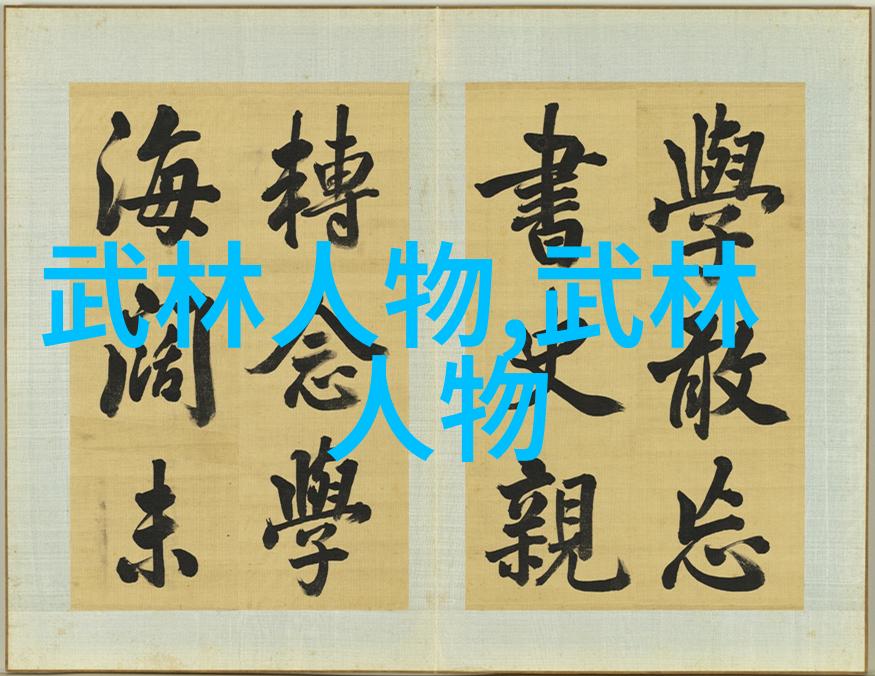 武林人物,武林
人物
學敢忘
書史親
轉念學
海闊未